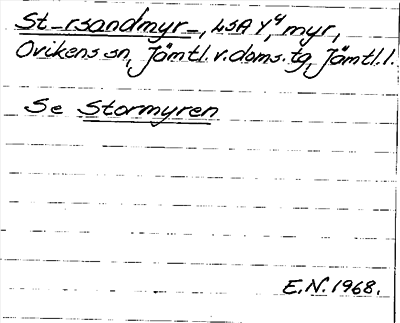 St-rsandmyr-, LSA Y4, myr,
Ovikens sn, Jämtl. v. doms. tg, Jämtl. l.
Se Stormyren
E.N. 1968.